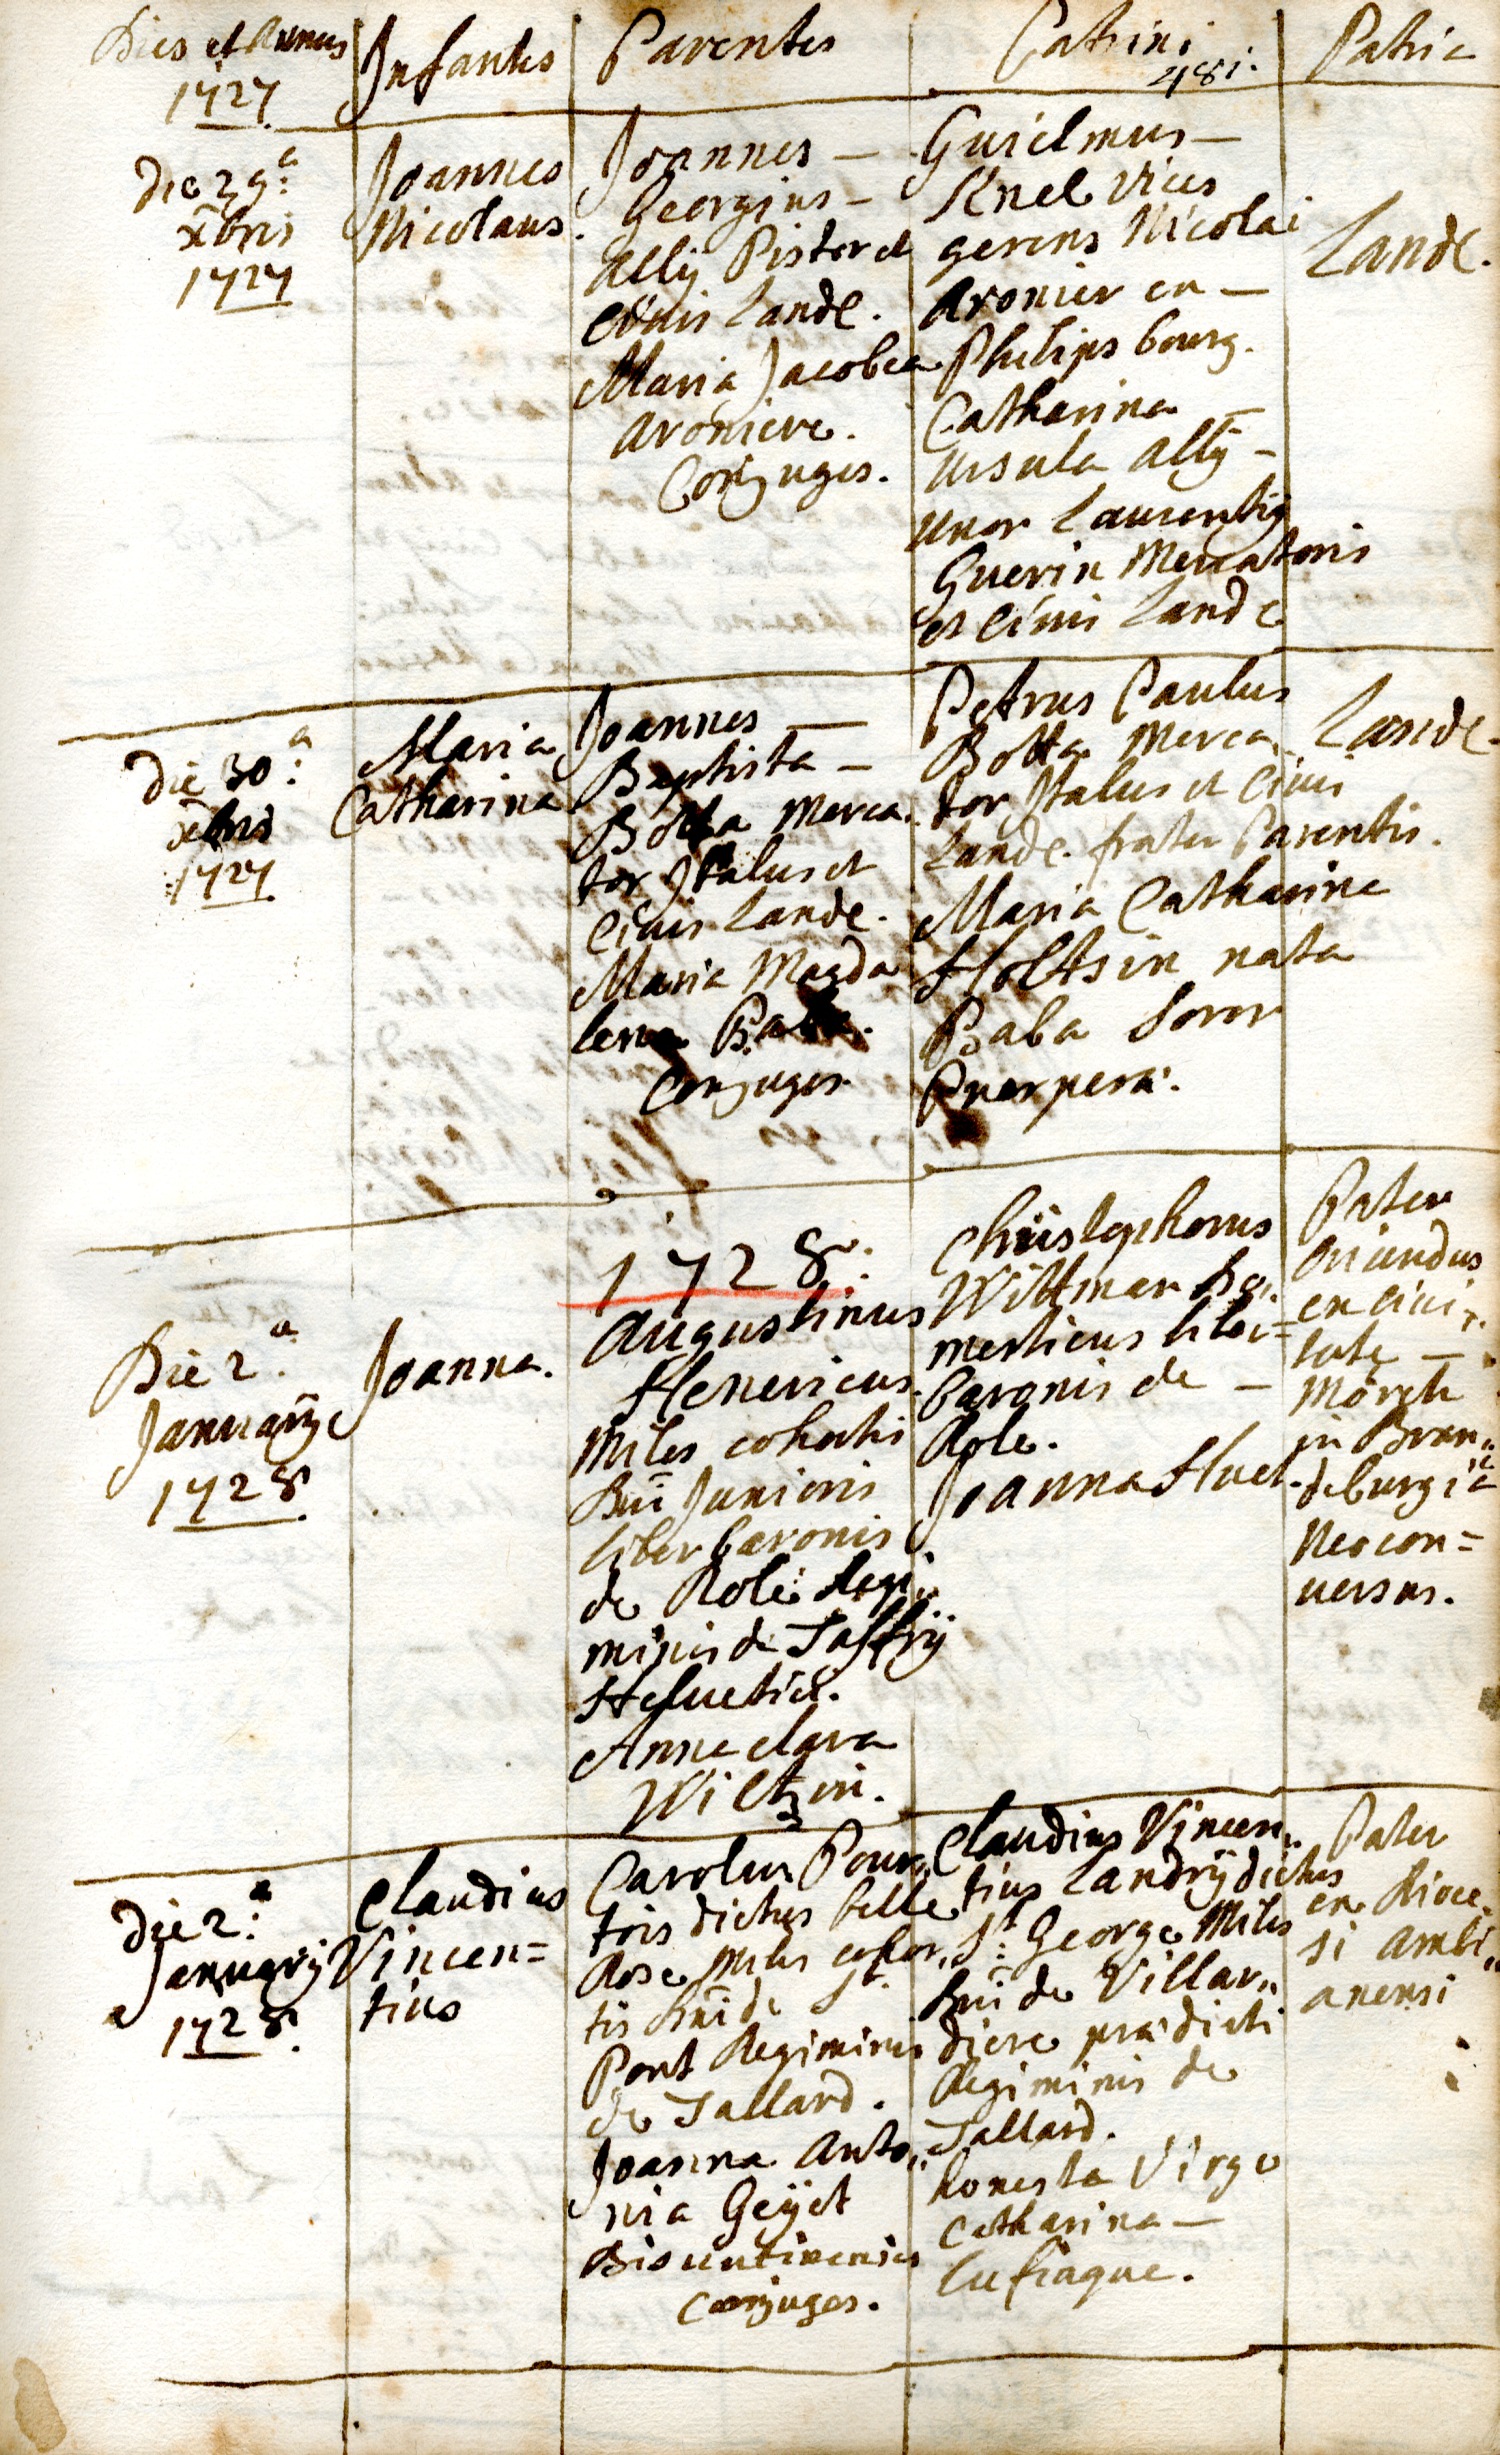 Dies et Annus
1727
Infantes
Parentes
Patrini
481.
Patria
Die 29.a
xbris
1727
Joannes
Nicolaus
Joannes —
Georgius —
Ally Pistor et
Civis Landₑ.
Maria Jacobea
Aroniere.
Conjuges.
Guielmus —
Knel vices
gerens Nicolai
Aronier en —
Philipsbourg.
Catharina —
Ursula Ally —
Uxor Laurentij
Guerin Mercatoris
et Civis Landₑ
Landₑ.
Die 30.a
xbris
1727
Maria
Catharina
Joannes —
Baptista —
Botta Merca
tor Italus et
Civis Landₑ.
Maria Magda
lena Baba.
Conjuges
Petrus Paulus
Botta Merca
tor Italus et Civis
Landₑ. frater Parentis.
Maria Catharina
Holtsin nata
Baba Soror
Puerperæ.
Landₑ.
1728.
Die 2.a
Januarij
1728.
Joanna.
Augustinus
Henericus.
Miles cohortis
Dni Junioris
liber baronis
de Role Regi
minis de
Helvetiæ.
Anna clara
Wiltzin.
Christophorus
Wittmar Do„
mesticus liberi=
baronis de —
Role.
Joanna Huet.
Pater
oriundus
ex civi„
tate —
Mörgh
in Bran„
deburgia
Neocon=
versus.
Die 2.a
Januarij
1728.
Claudius
Vincen=
tius
Carolus Pour„
trois dictus belle
Rose Miles cohor„
tis Dni de St.
Pont Regiminis
de Tallard.
Joanna Anto„
nia Geÿet
Bisuntinensis
Conjuges.
Claudius Vincen„
tius Landrÿ dictus
St. George Miles
Dni de Villar„
diere prædicti
Regiminis de
Tallard.
honesta Virgo
Catharina —
Lufiaque.
Pater
ex Dioce„
si Ambi„
anensi